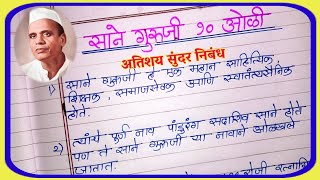 साने गुरूजी १० ओळी
अतिशय सुंदर निबंध
१) साने गुरूजी हे एक महान साहित्यिक,
शिक्षक, समाजसेवक आणि स्वातंत्र्यसैनिक
होते.
२) त्यांचे पूर्ण नाव पांडुरंग सदाशिव साने होते
पण ते साने गुरूजी या नावाने ओळखले
जातात.